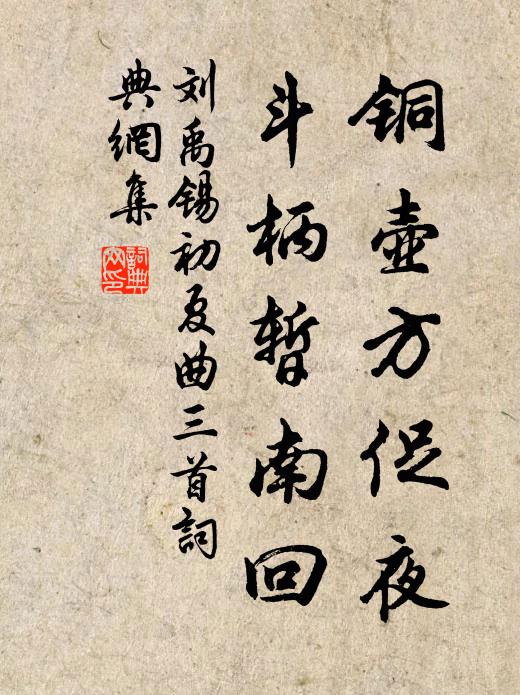 铜壶方促夜
斗柄暂南回
刘禹锡初夏曲三首词
典網集
詞典網印